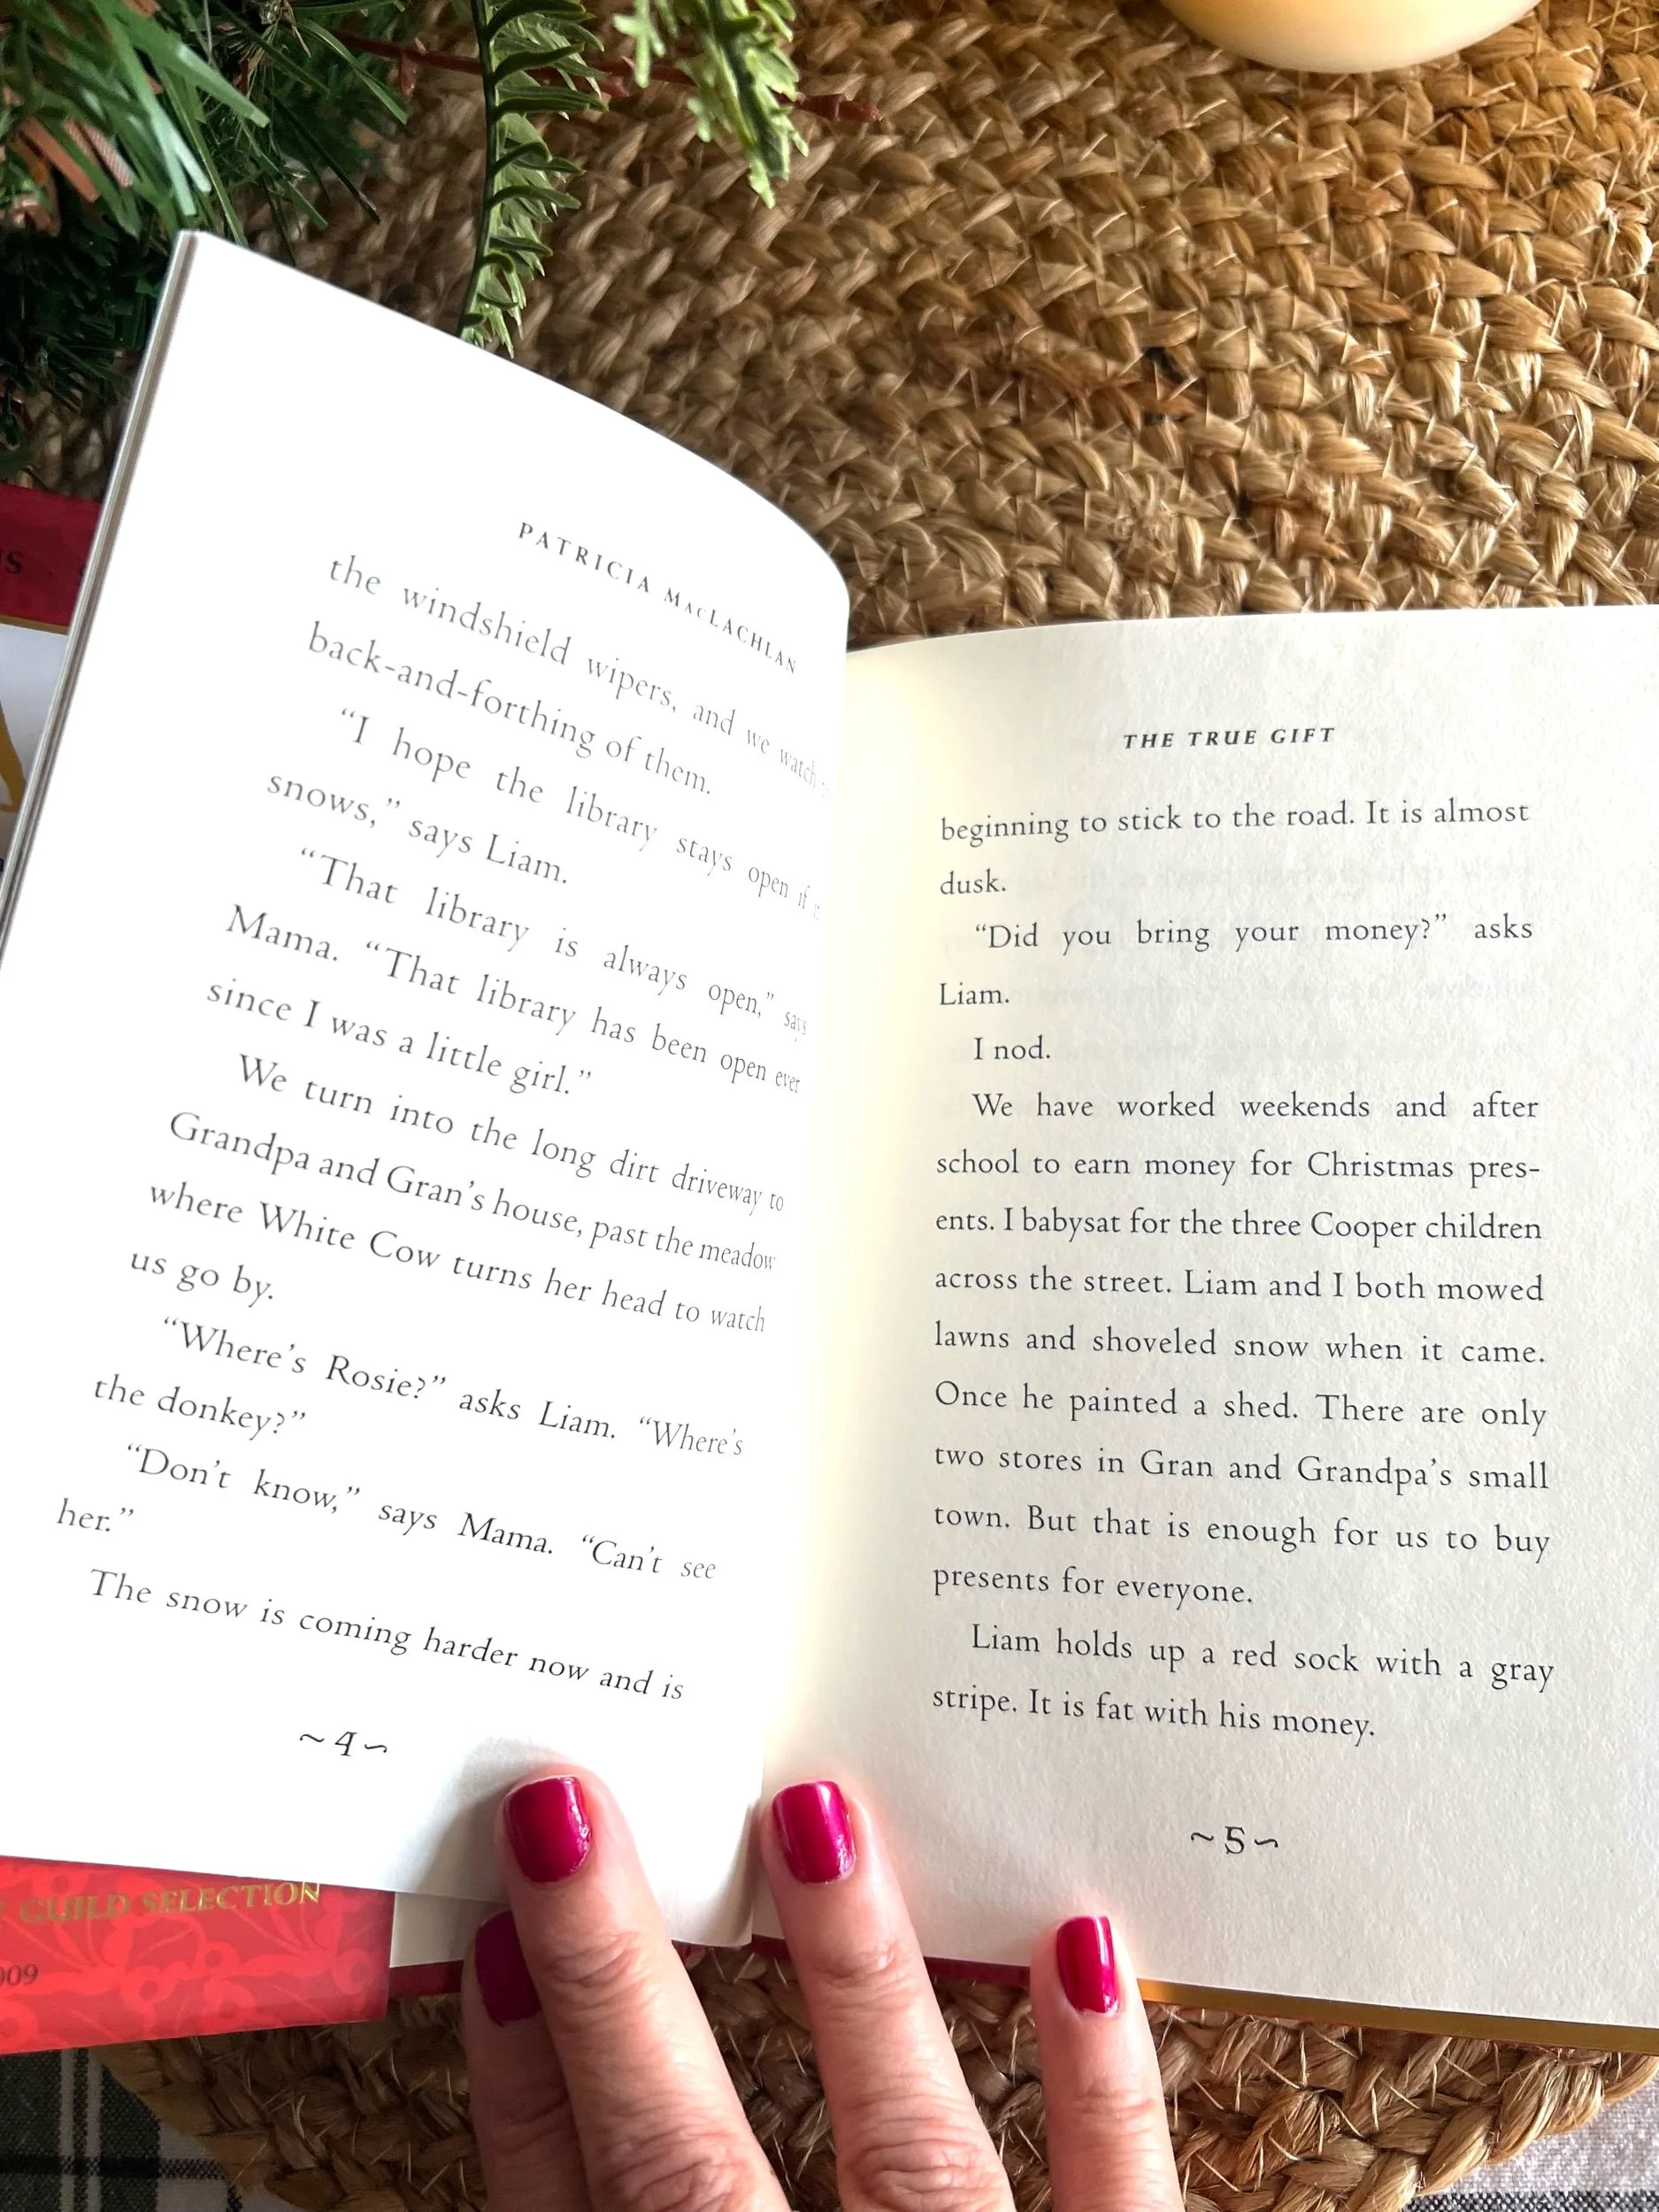 PATRICIA MACLACHLAN
the windshield wipers, and we watch
back-and-forthing of them.
“I hope the library stays open if
snows,” says Liam.
“That library is always open,” says
Mama. “That library has been open ever
since I was a little girl.”
We turn into the long dirt driveway to
Grandpa and Gran’s house, past the meadow
where White Cow turns her head to watch
us go by.
“Where’s Rosie?” asks Liam. “Where’s
the donkey?”
“Don’t know,” says Mama. “Can’t see
her.”
The snow is coming harder now and is
~4~
THE TRUE GIFT
beginning to stick to the road. It is almost
dusk.
“Did you bring your money?” asks
Liam.
I nod.
We have worked weekends and after
school to earn money for Christmas pres-
ents. I babysat for the three Cooper children
across the street. Liam and I both mowed
lawns and shoveled snow when it came.
Once he painted a shed. There are only
two stores in Gran and Grandpa’s small
town. But that is enough for us to buy
presents for everyone.
Liam holds up a red sock with a gray
stripe. It is fat with his money.
~5~
GUILD SELECTION
009